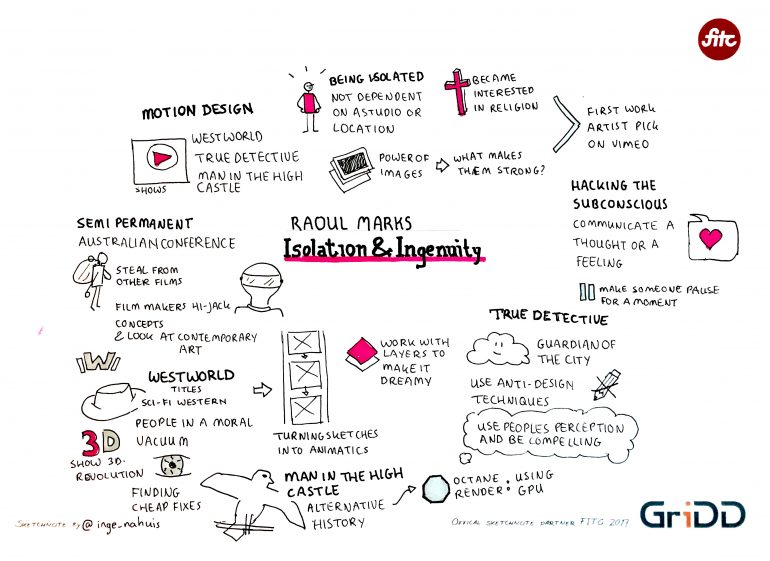 fitc
MOTION DESIGN
WESTWORLD
TRUE DETECTIVE
MAN IN THE HIGH
CASTLE
SHOWS
BEING ISOLATED
NOT DEPENDENT
ON A STUDIO OR
LOCATION
BECAME
INTERESTED
IN RELIGION
FIRST WORK
ARTIST PICK
ON VIMEO
POWER OF
IMAGES
WHAT MAKES
THEM STRONG?
HACKING THE
SUBCONSCIOUS
COMMUNICATE A
THOUGHT OR A
FEELING
MAKE SOMEONE PAUSE
FOR A MOMENT
RAOUL MARKS
Isolation & Ingenuity
SEMI PERMANENT
AUSTRALIAN CONFERENCE
STEAL FROM
OTHER FILMS
FILM MAKERS HI-JACK
CONCEPTS
& LOOK AT CONTEMPORARY
ART
W
WESTWORLD
TITLES
SCI-FI WESTERN
PEOPLE IN A MORAL
VACUUM
3D
SHOW 3D.
REVOLUTION
FINDING
CHEAP FIXES
TURNING SKETCHES
INTO ANIMATICS
WORK WITH
LAYERS TO
MAKE IT
DREAMY
TRUE DETECTIVE
GUARDIAN OF
THE CITY
USE ANTI-DESIGN
TECHNIQUES
USE PEOPLES PERCEPTION
AND BE COMPELLING
MAN IN THE HIGH
CASTLE
ALTERNATIVE
HISTORY
OCTANE : USING
RENDER : GPU
SKETCHNOTE BY @inge_nahuis
OFFICAL SKETCHNOTE PARTNER FITC 2017
GriDD